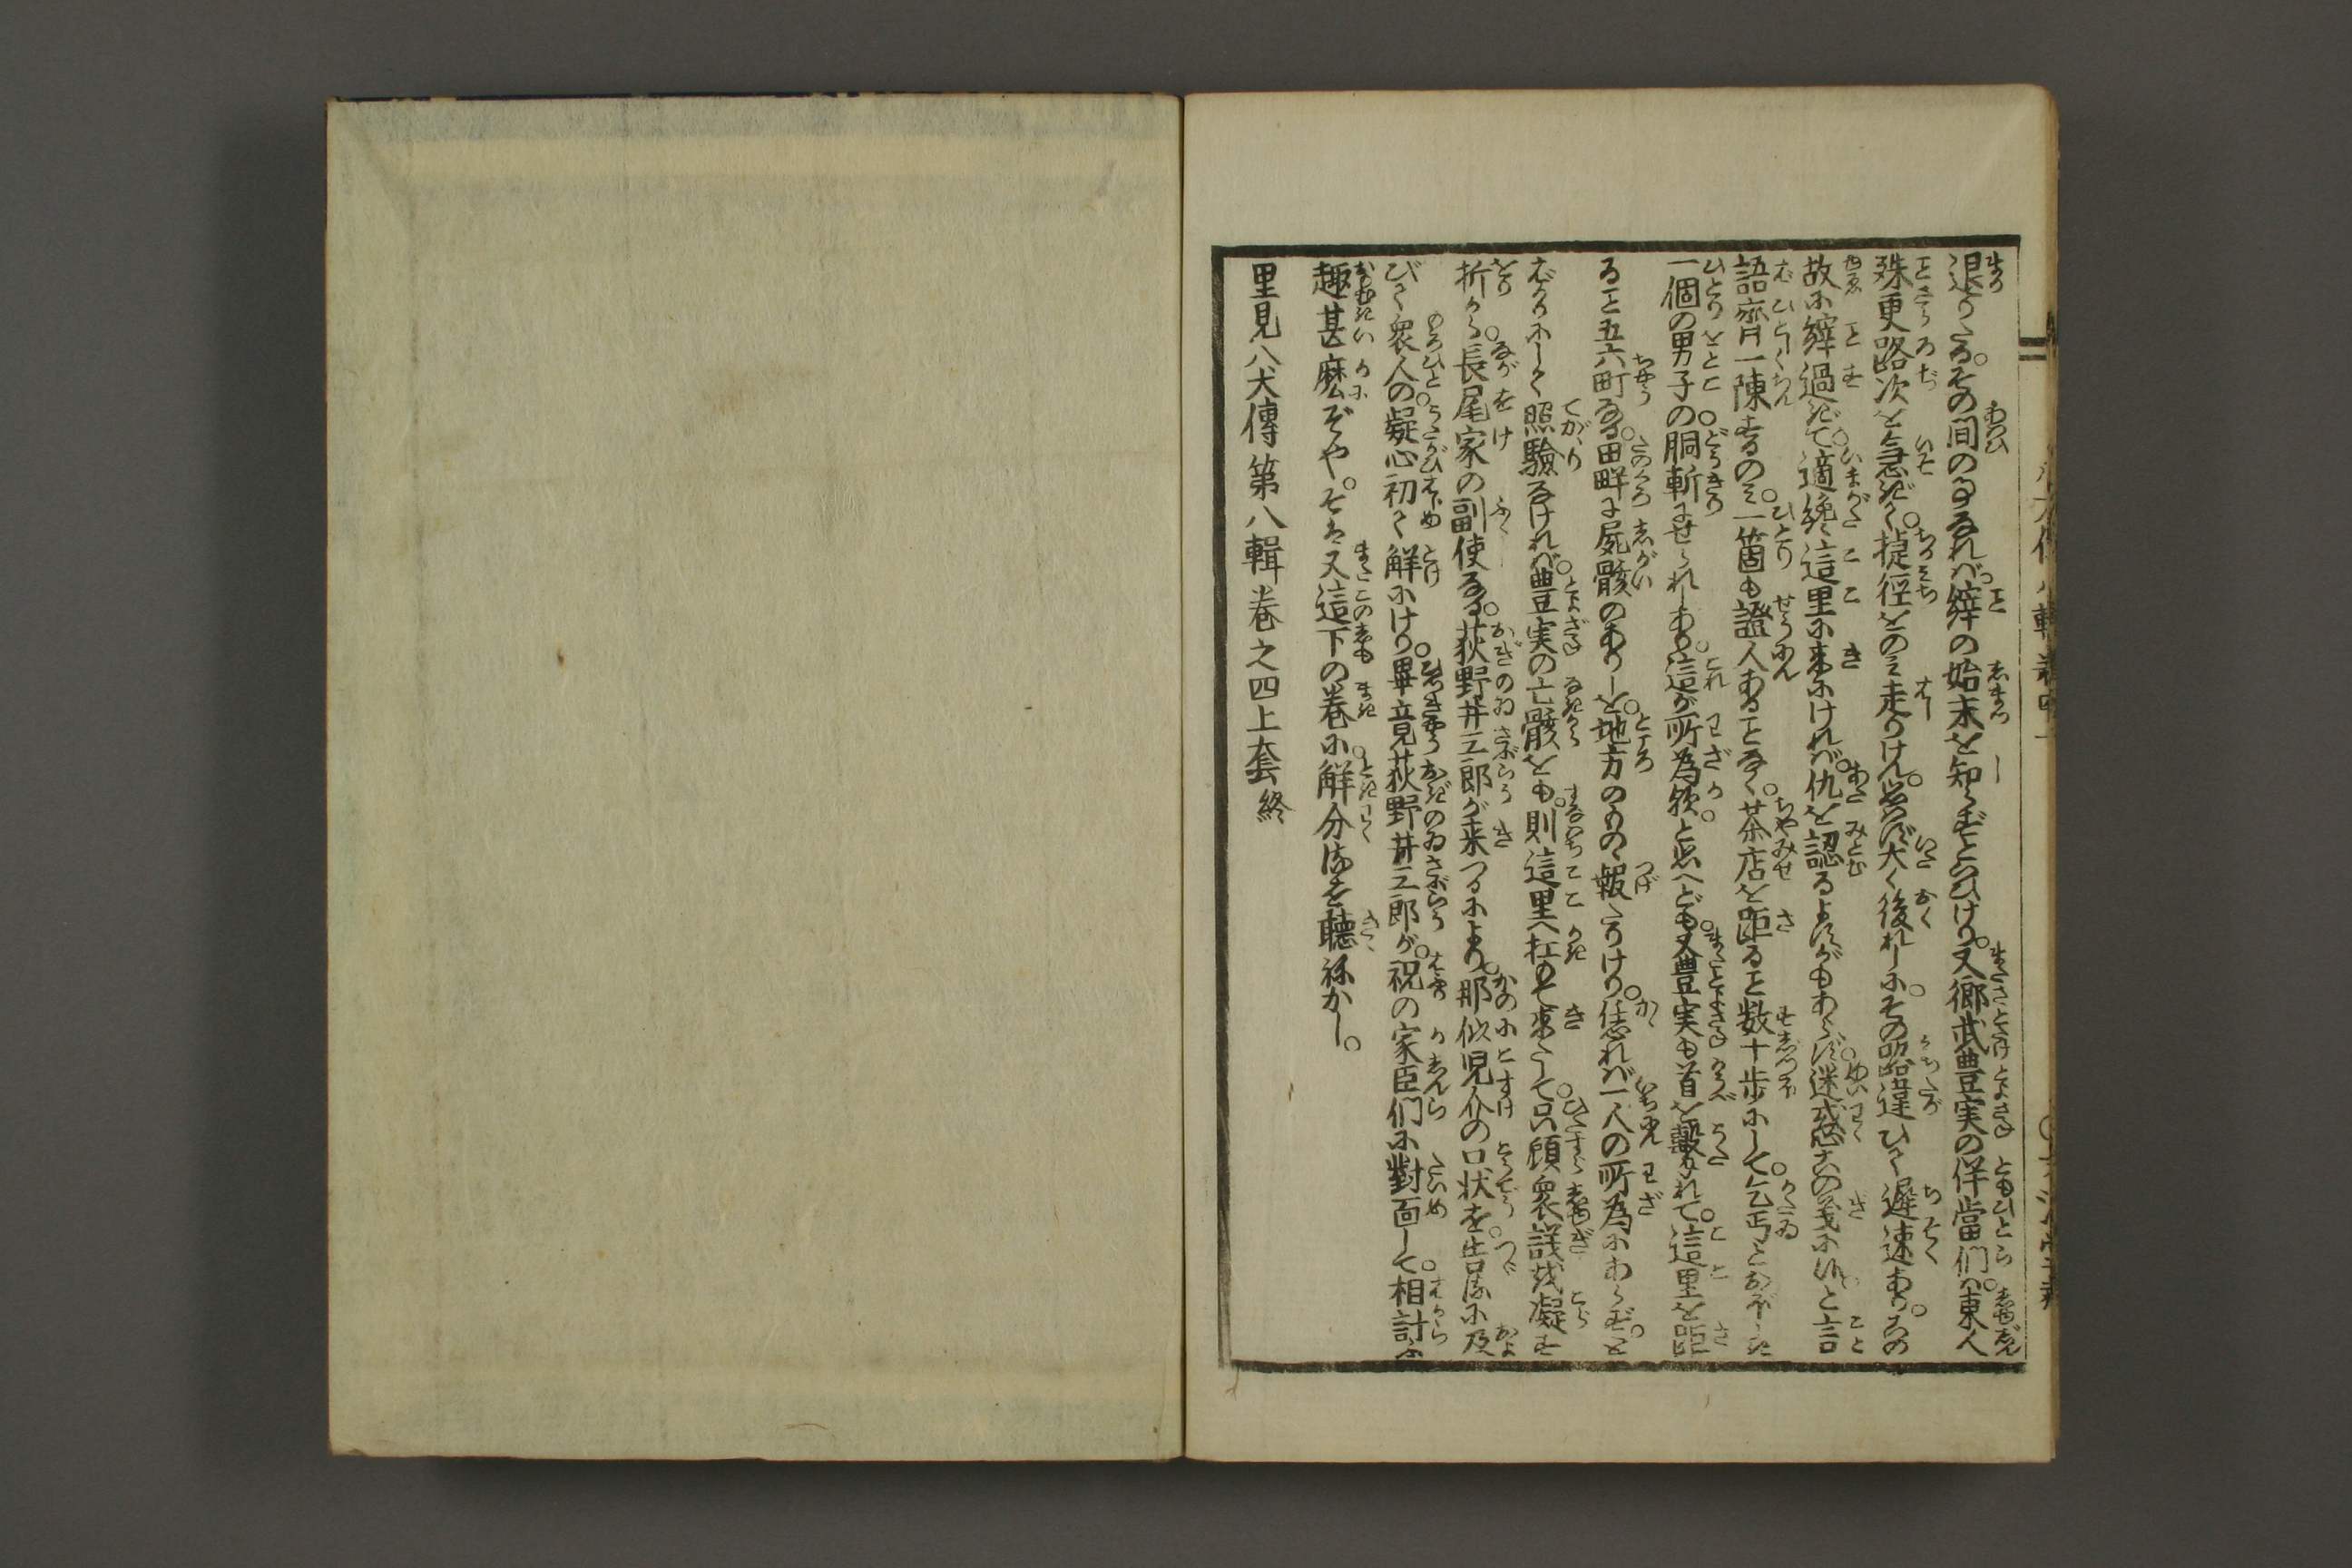 退りたる。その間の事なれば、縡の始末を知らずといひけり。又郷武豊実の伴當們は、東人
殊更路次を急ぎて、捷徑をのみ走りけん。思はず太く後れしに、その路違ひて遲速あり。その
故に縡過ぎて、適纔這里に來にければ、仇を認るよしもあらず。迷惑この義に候と、言
語齊一陳ずるのみ。一箇も證人あることなく、茶店を距ること数十歩にして、乞丐とおぼしき
一個の男子の胴斬にせられしあり。這が所為欤と思へども、又豊実も首を馘かれて、這里を距
ること五六町なる田畔に屍骸のありしを、地方のもの報たりけり。恁れば一人の所為にあらずと
ばかりにして照驗なければ、豊実の亡骸をも、則這里へ扛もて来たして、只顧衆議を凝す
折から、長尾家の副使なる、荻野井三郎が来つるにより、那似児介の口状を、告るに及
びて衆人の、疑心初て解にけり。畢竟荻野井三郎が、祝の家臣們に對面して、相計ふ
趣甚麼ぞや。そは又這下の巻に解分るを聽ねかし。
里見八犬傳第八輯巻之四上套終